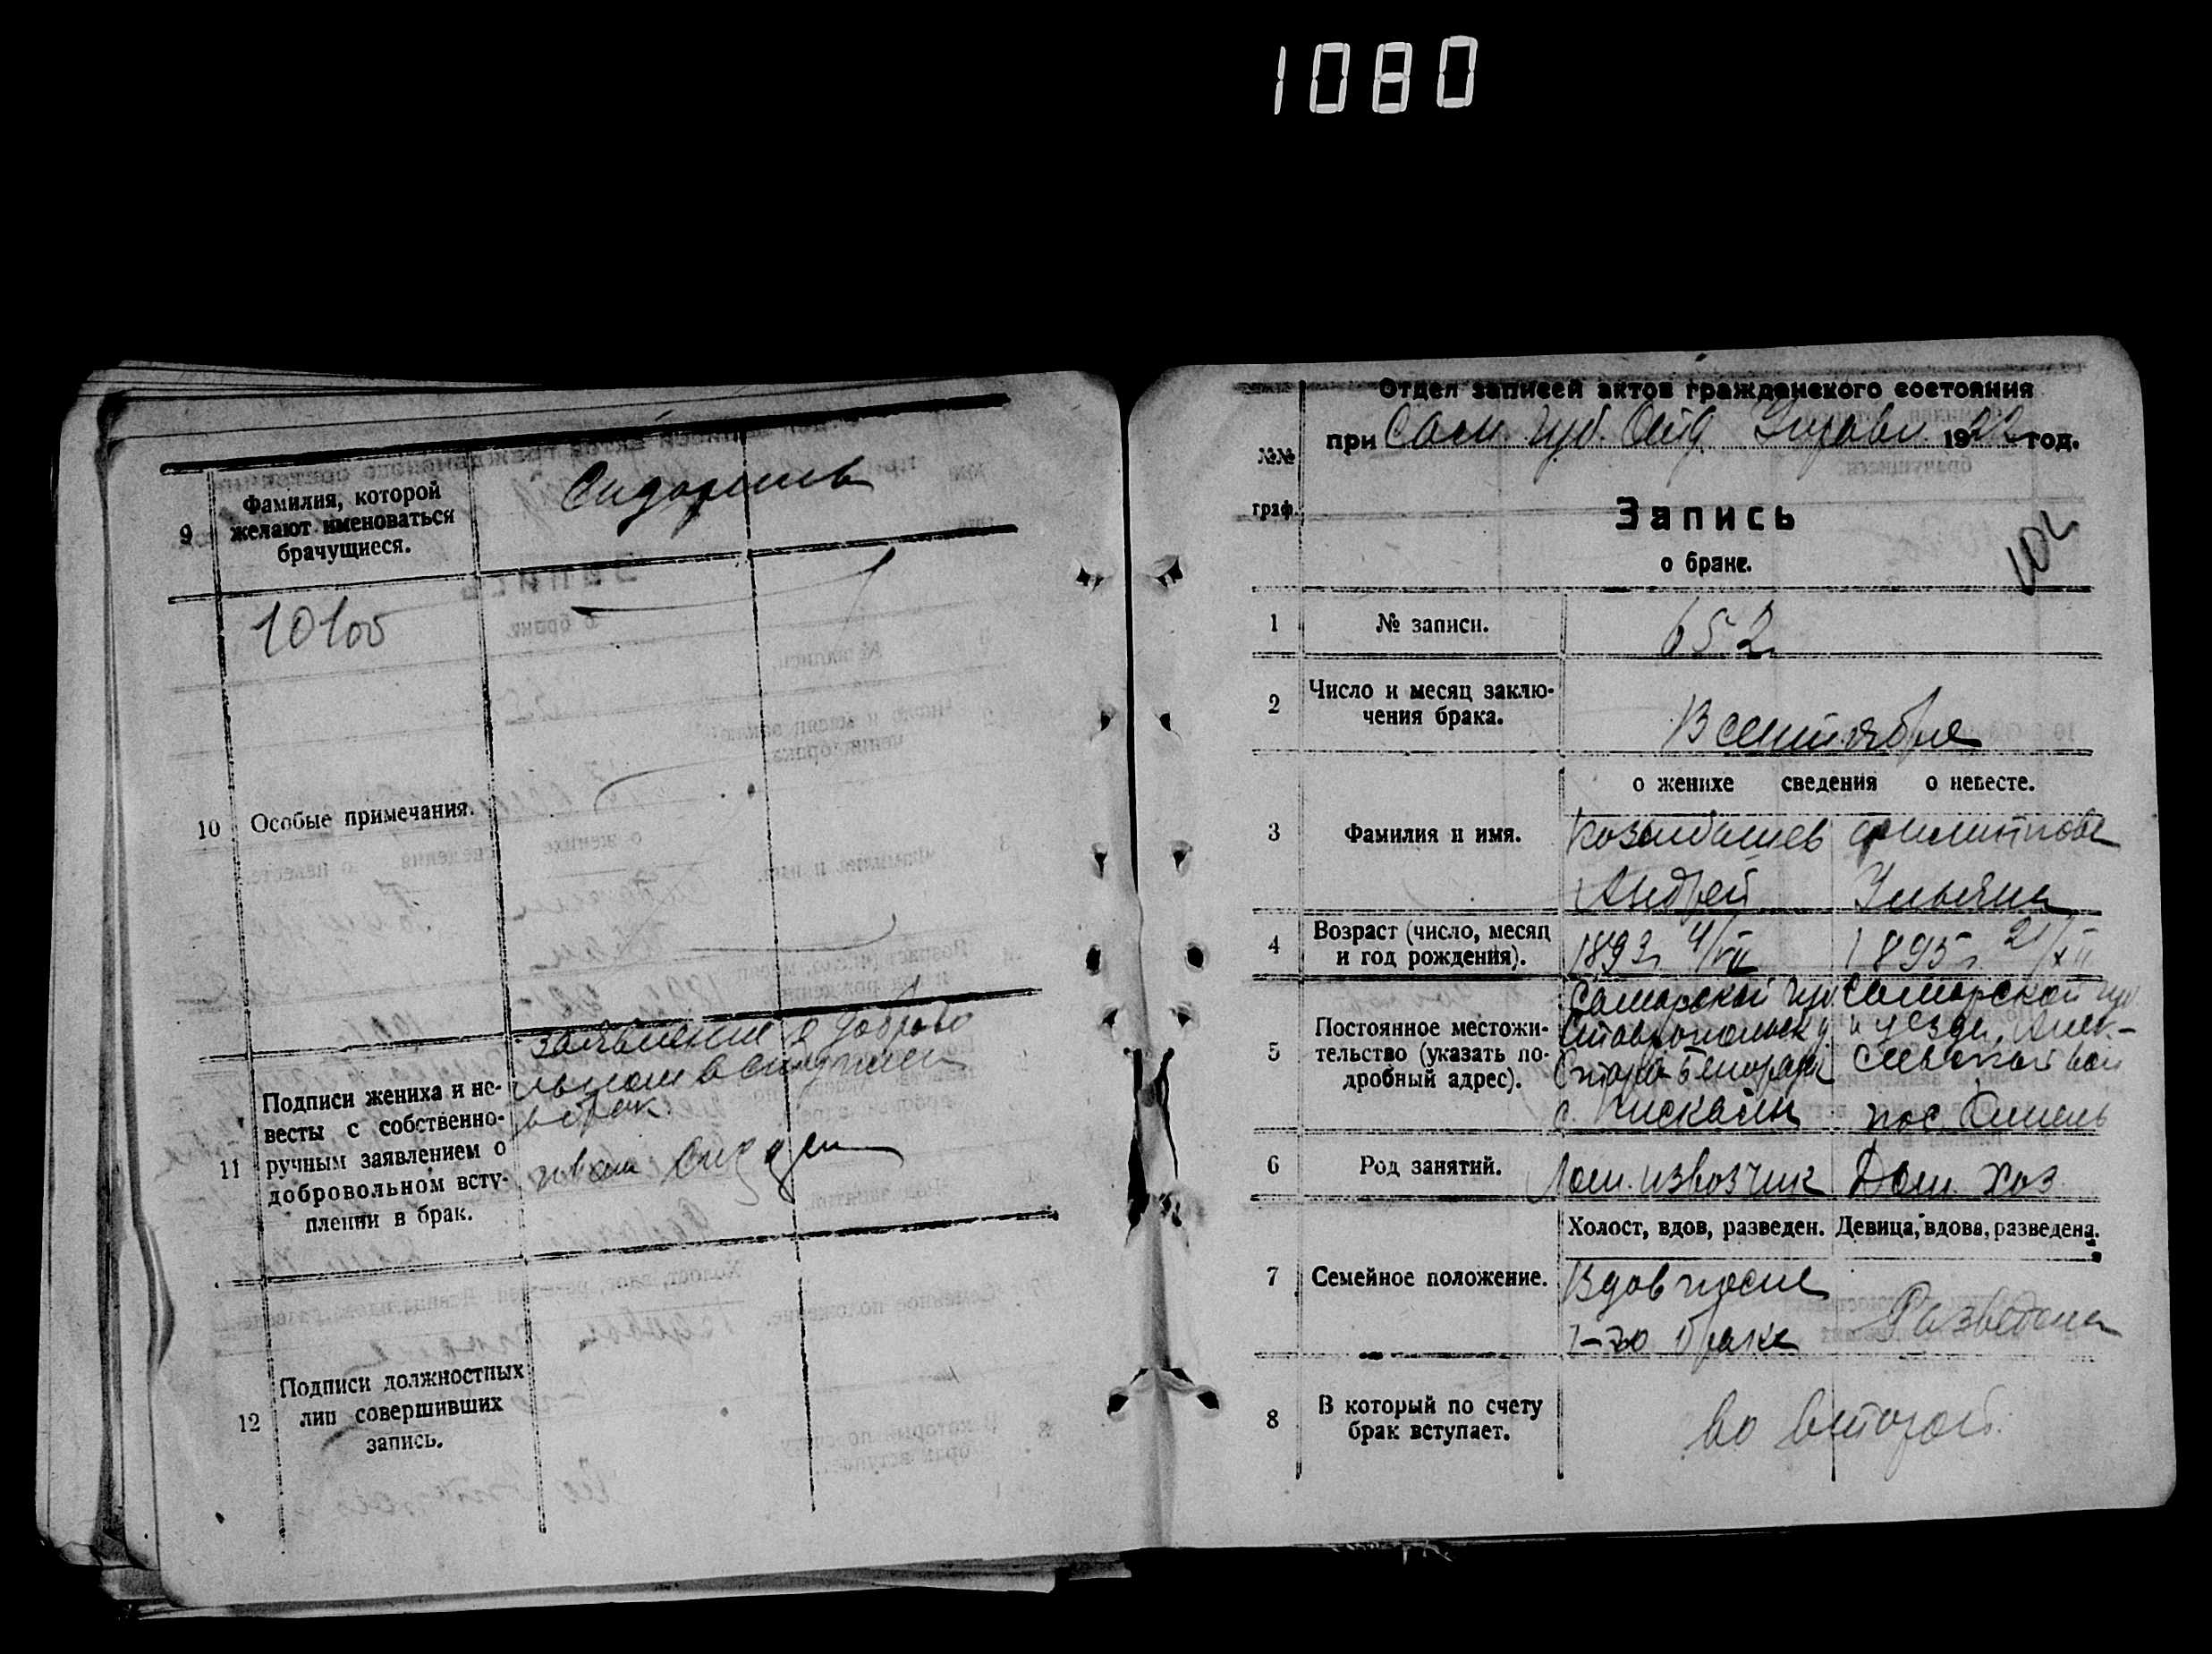 1080
9
Фамилия, которой
желают именоваться
брачущиеся.
10100
10
Особые примечания.
11
Подписи жениха и не-
весты с собственно-
ручным заявлением о
добровольном всту-
плении в брак.
заявление о доброво
льном вступлен
в брак.
12
Подписи должностных
лиц совершивших
запись.
Отдел записей актов гражданского состояния
при Сам. Губ. Отд. Управл. 1922 год.
№№
граф.
Запись
о браке.
1
№ записи.
652
2
Число и месяц заклю-
чения брака.
13 сентября
о женихе сведения о невесте.
3
Фамилия и имя.
Андрей
Ульяна
4
Возраст (число, месяц
и год рождения).
1893г. 4/VII
1895г. 21/XII
5
Постоянное местожи-
тельство (указать по-
дробный адрес).
Самарской губ.
с. Пискалы
Самарской губ
и уезда, Алек-
сеевской вол
пос. Кинель
6
Род занятий.
Лом. извозчик
Дом. хоз.
Холост, вдов, разведен.
Девица, вдова, разведена.
7
Семейное положение.
Вдов после
1-го брака
Разведена
8
В который по счету
брак вступает.
во второй.